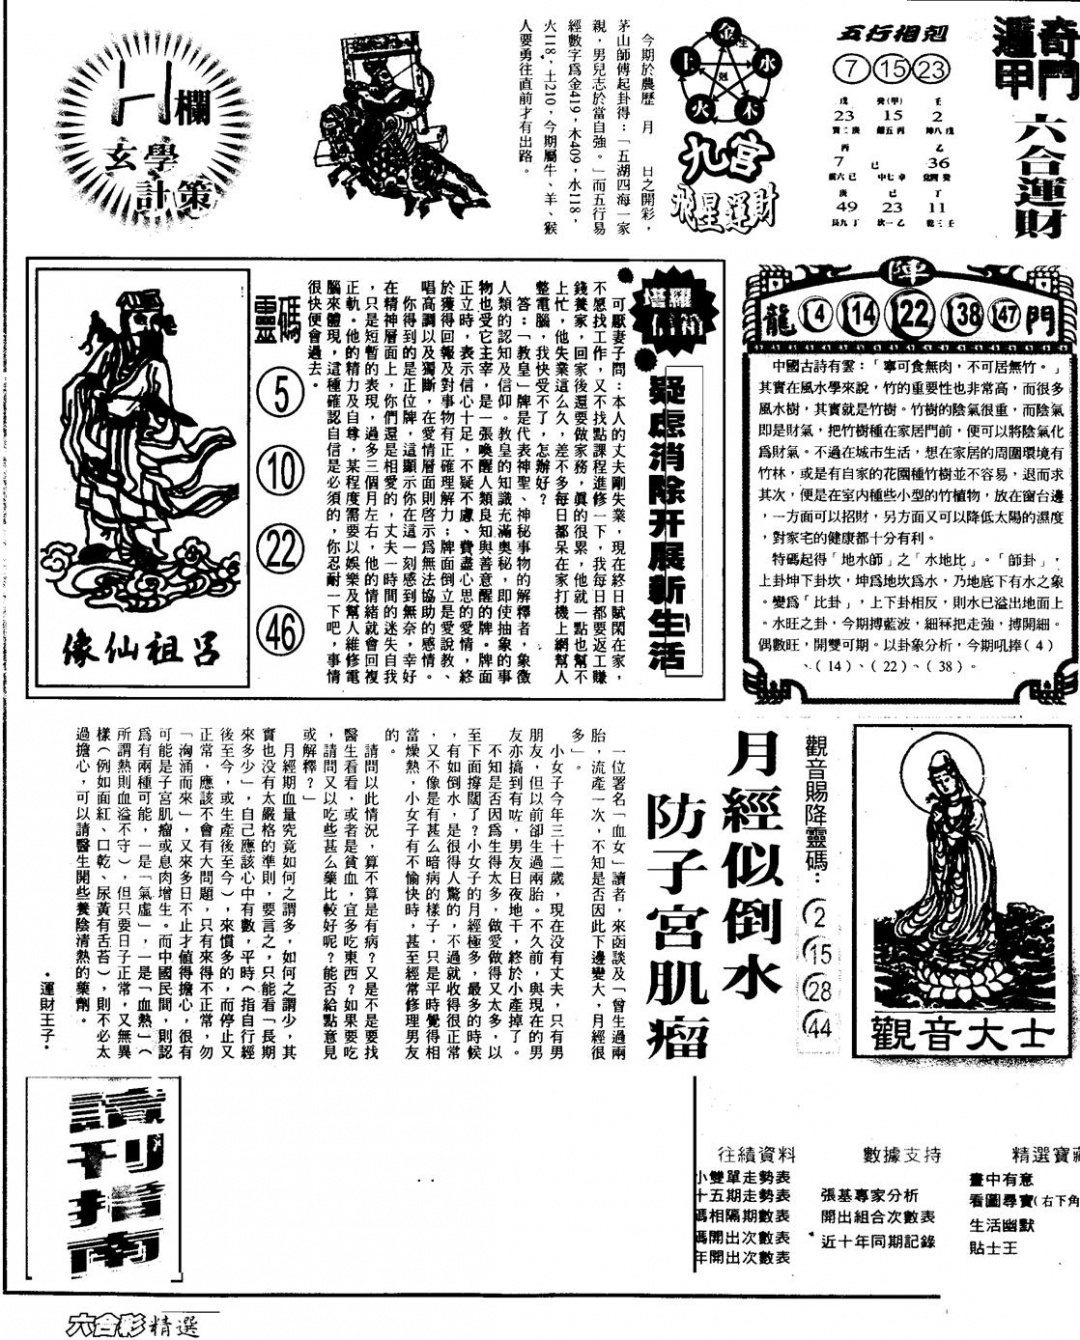 奇門遁甲
六合運財
五行相剋
7 15 23
戊 癸(甲) 壬
23 15 2
丙 乙
7 36
庚 已 丁
49 23 11
金
水
木
火
土
生
剋
九宮
飛星運財
今期於農歷 月 日之開彩，
茅山師傅起卦得：「五湖四海一家
親，男兒志於當自強。」而五行易
經數字爲金419，木409，水118，
火118，土210，今期屬牛、羊、猴
人要勇往直前才有出路。
欄
玄學
計策
陣
龍 4 14 22 38 47 門
中國古詩有雲：「寧可食無肉，不可居無竹。」
其實在風水學來說，竹的重要性也非常高，而很多
風水樹，其實就是竹樹。竹樹的陰氣很重，而陰氣
即是財氣，把竹樹種在家居門前，便可以將陰氣化
爲財氣。不過在城市生活，想在家居的周圍環境有
竹林，或是有自家的花園種竹樹並不容易，退而求
其次，便是在室内種些小型的竹植物，放在窗台邊
，一方面可以招財，另方面又可以降低太陽的濕度
，對家宅的健康都十分有利。
特碼起得「地水師」之「水地比」。「師卦」，
上卦坤下卦坎，坤爲地坎爲水，乃地底下有水之象
。變爲「比卦」，上下卦相反，則水已溢出地面上
。水旺之卦，今期搏藍波，細冧把走強，搏開細。
偶數旺，開雙可期。以卦象分析，今期吼捧（4）
、（14）、（22）、（38）。
塔羅
疑慮消除开展新生活
可厭妻子問：本人的丈夫剛失業，現在終日賦閑在家，
不愿找工作，又不找點課程進修一下，我每日都要返工賺
錢養家，回家後還要做家務，眞的很累，他就一點也幫不
上忙，他失業這么久，差不多每日都呆在家打機上網幫人
整電腦，我快受不了，怎辦好？
答：「教皇」牌是代表神聖、神秘事物的解釋者，象徵
人類的認知及信仰。教皇的知識充滿奧秘，即使抽象的事
物也受它主宰，是一張喚醒人類良知與善意醒的牌。牌面
正立時，表示信心十足，不疑不慮、費盡心思的愛情，終
於獲得回報及對事物有正確理解力；牌面倒立是愛說教、
唱高調以及獨斷，在愛情層面則啓示爲無法協助的感情。
你得到的是正位牌，這顯示你在這一刻感到無奈，幸好
在精神層面上，你們還是相愛的，丈夫一時間的迷失自我
，只是短暫的表現，過多三個月左右，他的情緒就會回複
正軌。他的精力及自尊，某程度需要以娛樂及幫人維修電
腦來體現，這種確認自信是必須的，你忍耐一下吧，事情
很快便會過去。
靈碼
5
10
22
46
呂祖仙像
觀音大士
觀音賜降靈碼：
2
15
28
44
月經似倒水
防子宮肌瘤
一位署名「血女」讀者，來函談及「曾生過兩
胎，流產一次，不知是否因此下邊變大，月經很
多」。
小女子今年三十二歲，現在没有丈夫，只有男
朋友，但以前卻生過兩胎。不久前，與現在的男
友亦搞到有咗，男友日夜地干，終於小產掉了。
不知是否因爲生得太多，做愛做得又太多，以
至下面撐闊了？小女子的月經極多，最多的時候
，有如倒水，是很得人驚的，不過就收得很正常
，又不像是有甚么暗病的樣子，只是平時覺得相
當燥熱，小女子有不愉快時，甚至經常修理男友
的。
請問以此情況，算不算是有病？又是不是要找
醫生看看，或者是貧血，宜多吃東西？如果要吃
，請問又以吃些甚么藥比較好呢？能否給點意見
或解釋？」
月經期血量究竟如何之謂多，如何之謂少，其
實也没有太嚴格的準則，要言之，只能看「長期
來多少」，自己應該心中有數，平時（指自行經
後至今，或生產後至今），來慣多的，而停止又
正常，應該不會有大問題，只有來得不正常，勿
「洶涌而來」，又來多日不止才値得擔心，很有
可能是子宮肌瘤或息肉增生。而中國民間，則認
爲有兩種可能，一是「氣虛」，一是「血熱」（
所謂熱則血溢不守），但只要日子正常，又無異
樣（例如面紅、口乾、尿黃有舌苔），則不必太
過擔心，可以請醫生開些養陰清熱的藥劑。
·運財王子·
讀刊指南
往績資料 數據支持 精選寶藏
小雙單走勢表
十五期走勢表
碼相隔期數表
碼開出次數表
年開出次數表
張基專家分析
開出組合次數表
近十年同期記錄
畫中有意
看圖尋寶(右下角
生活幽默
貼士王
六合彩精選